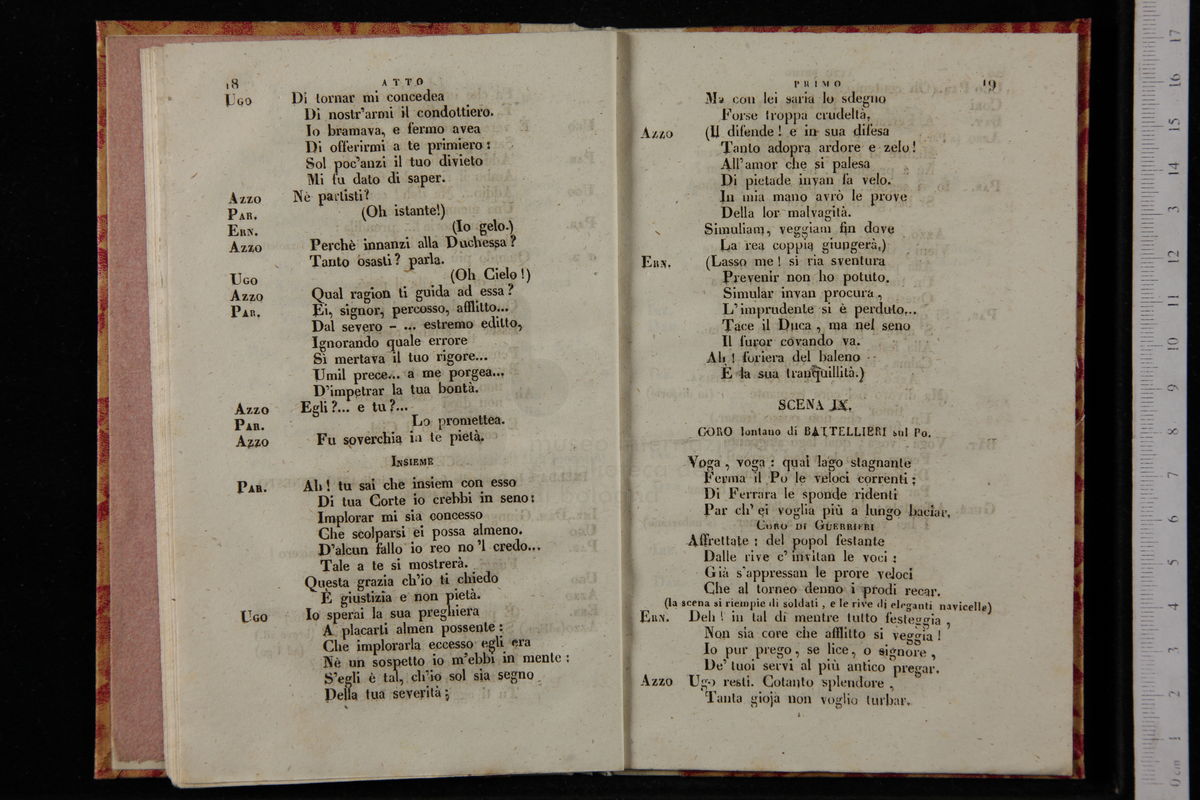 18
ATTO
UGO Di tornar mi concedea
Di nostr'armi il condottiero.
Io bramava, e fermo avea
Di offerirmi a te primiero:
Sol poc'anzi il tuo divieto
Mi fu dato di saper.
AZZO Nè partisti?
PAR. (Oh istante!)
ERN. (Io gelo.)
AZZO Perchè innanzi alla Duchessa?
Tanto osasti? parla.
UGO (Oh Cielo!)
AZZO Qual ragion ti guida ad essa?
PAR. Ei, signor, percosso, afflitto...
Dal severo - ... estremo editto,
Ignorando quale errore
Si mertava il tuo rigore...
Umil prece... a me porgea...
D'impetrar la tua bontà.
AZZO Egli?... e tu?...
PAR. Lo promettea.
AZZO Fu soverchia in te pietà.
INSIEME
PAR. Ah! tu sai che insiem con esso
Di tua Corte io crebbi in seno:
Implorar mi sia concesso
Che scolparsi ei possa almeno.
D'alcun fallo io reo no 'l credo...
Tale a te si mostrerà.
Questa grazia ch'io ti chiedo
È giustizia e non pietà.
UGO Io sperai la sua preghiera
A placarti almen possente:
Che implorarla eccesso egli era
Nè un sospetto io m'ebbi in mente:
S'egli è tal, ch'io sol sia segno
Della tua severità;
PRIMO
19
Ma con lei saria lo sdegno
Forse troppa crudeltà,
AZZO (Il difende! e in sua difesa
Tanto adopra ardore e zelo!
All'amor che si palesa
Di pietade invan fa velo.
In mia mano avrò le prove
Della lor malvagità.
Simuliam, veggiam fin dove
La rea coppia giungerà.)
ERN. (Lasso me! si ria sventura
Prevenir non ho potuto.
Simular invan procura,
L'imprudente si è perduto...
Tace il Duca, ma nel seno
Il furor covando va.
Ah! foriera del baleno
È la sua tranquillità.)
SCENA IX.
CORO lontano di BATTELLIERI sul Po.
Voga, voga: qual lago stagnante
Ferma il Po le veloci correnti;
Di Ferrara le sponde ridenti
Par ch' ei voglia più a lungo baciar.
CORO DI GUERRIERI
Affrettate: del popol festante
Dalle rive c' invitan le voci:
Già s'appressan le prore veloci
Che al torneo denno i prodi recar.
(la scena si riempie di soldati, e le rive di eleganti navicelle)
ERN. Deh! in tal dì mentre tutto festeggia,
Non sia core che afflitto si veggia!
Io pur prego, se lice, o signore,
De' tuoi servi al più antico pregar.
AZZO Ugo resti. Cotanto splendore,
Tanta gioja non voglio turbar.
0 cm 1 2 3 4 5 6 7 8 9 10 11 12 13 14 15 16 17